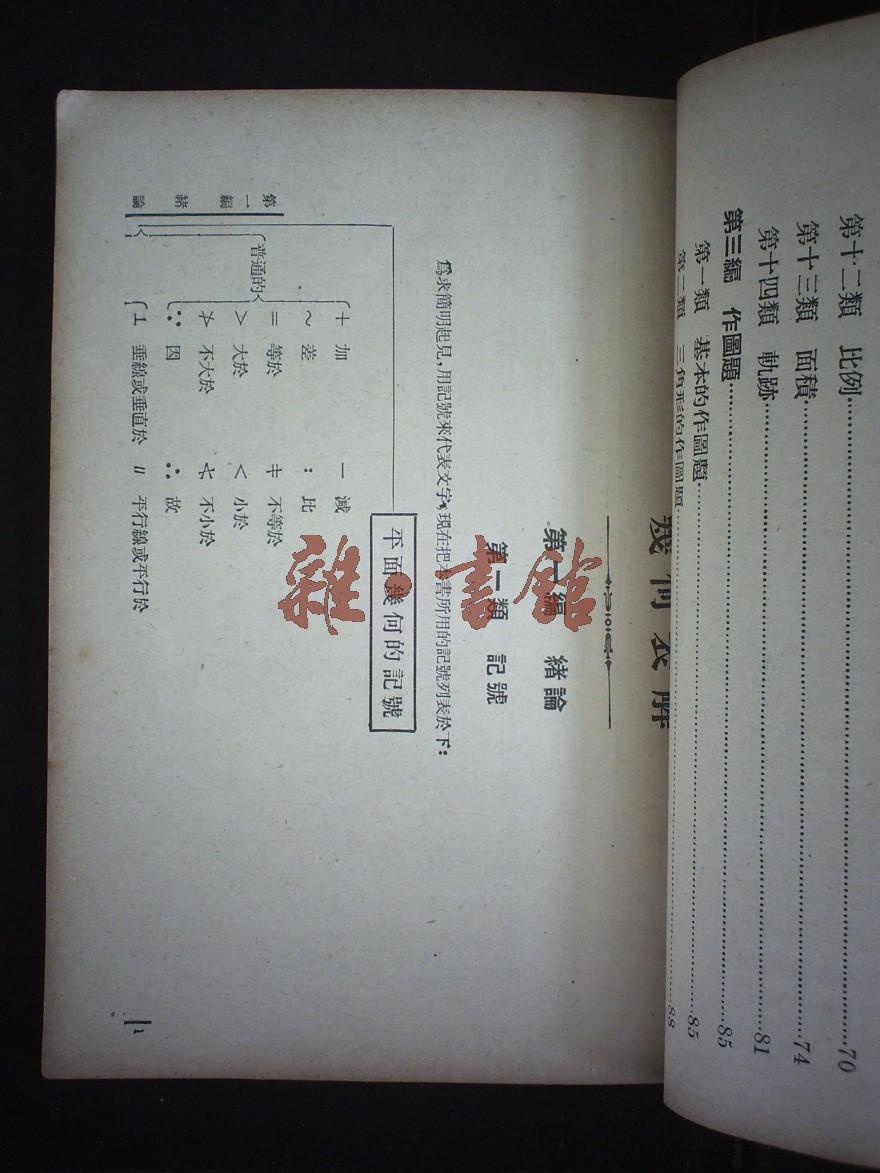 第十二類 比例……70
第十三類 面積……74
第十四類 軌跡……81
第三編 作圖題……85
第一類 基本的作圖題……85
第二類 三角形的作圖題……88
幾何表解
第一編 緒論
第二類 記號
為求簡明起見，用記號來代表文字，現在把本書所用的記號列表於下：
平面幾何的記號
普通的
+ 加 － 減
～ 差 : 比
= 等於 ≠ 不等於
> 大於 < 小於
≯ 不大於 ≮ 不小於
∵ 因 ∴ 故
⊥ 垂線或垂直於 ∥ 平行線或平行於
第一編 緒論
1
雜·書館